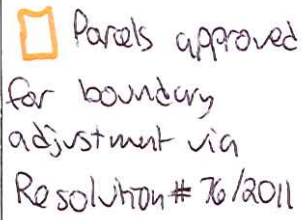 Parcels approved
for boundary
adjustment via
Resolution # 76/2011